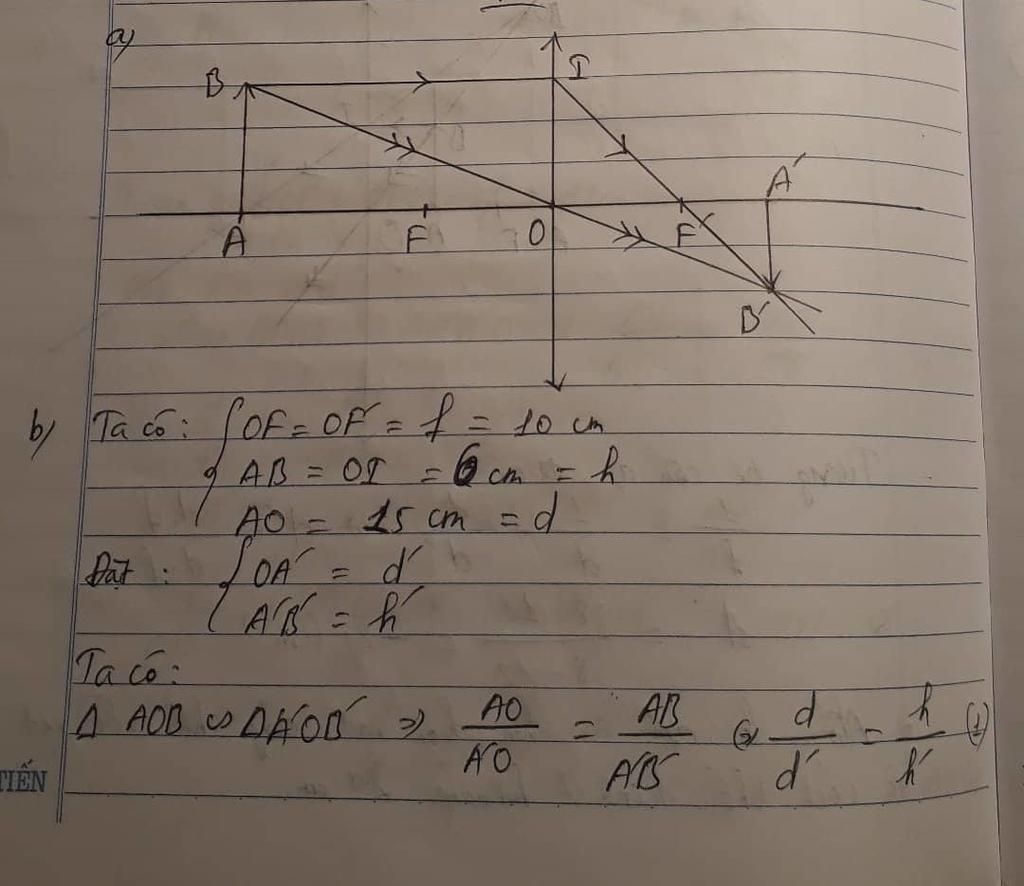 a)
B I
A F O F' A'
B'
b) Ta có: { OF = OF' = f = 10 cm
AB = OI = 6 cm = h
AO = 15 cm = d
Đặt : { OA' = d'
A'B' = h'
Ta có:
Δ AOB ∽ ΔA'OB' => AO/A'O = AB/A'B' <=> d/d' = h/h' (1)
TIẾN